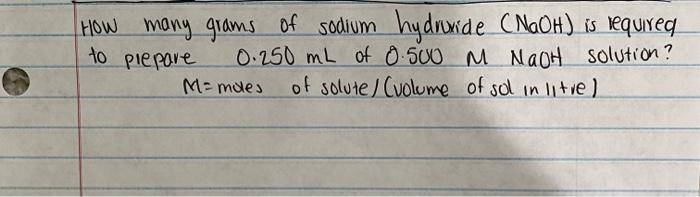 HOW many grams of sodium hydroxide (NaOH) is required
to prepare 0.250 mL of 0.500 M NaOH solution?
M=moles of solute/(volume of sol in litre)